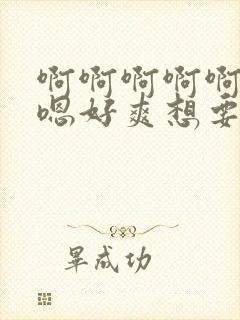 啊啊啊啊啊
嗯好爽想要
畢成功